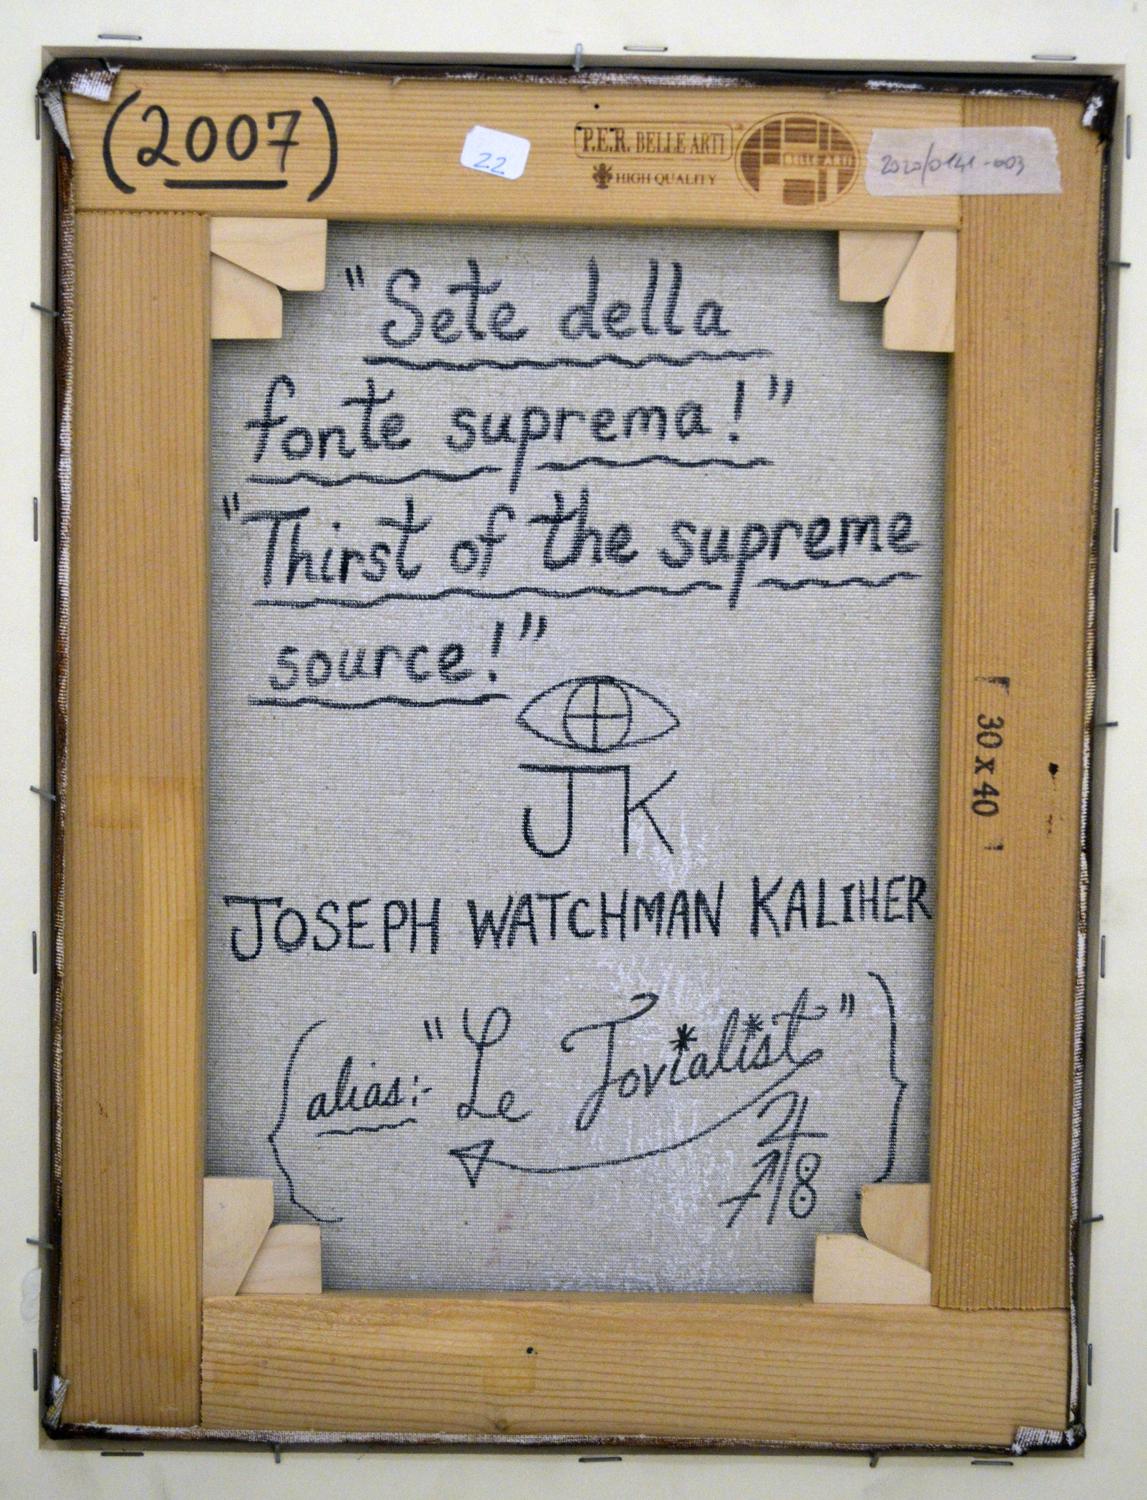 (2007)
22
P.E.R. BELLE ARTI
HIGH QUALITY
2020/0141-003
"Sete della
fonte suprema!"
"Thirst of the supreme
source!"
30 x 40
JK
JOSEPH WATCHMAN KALIHER
(alias:- "Le Jovialist"